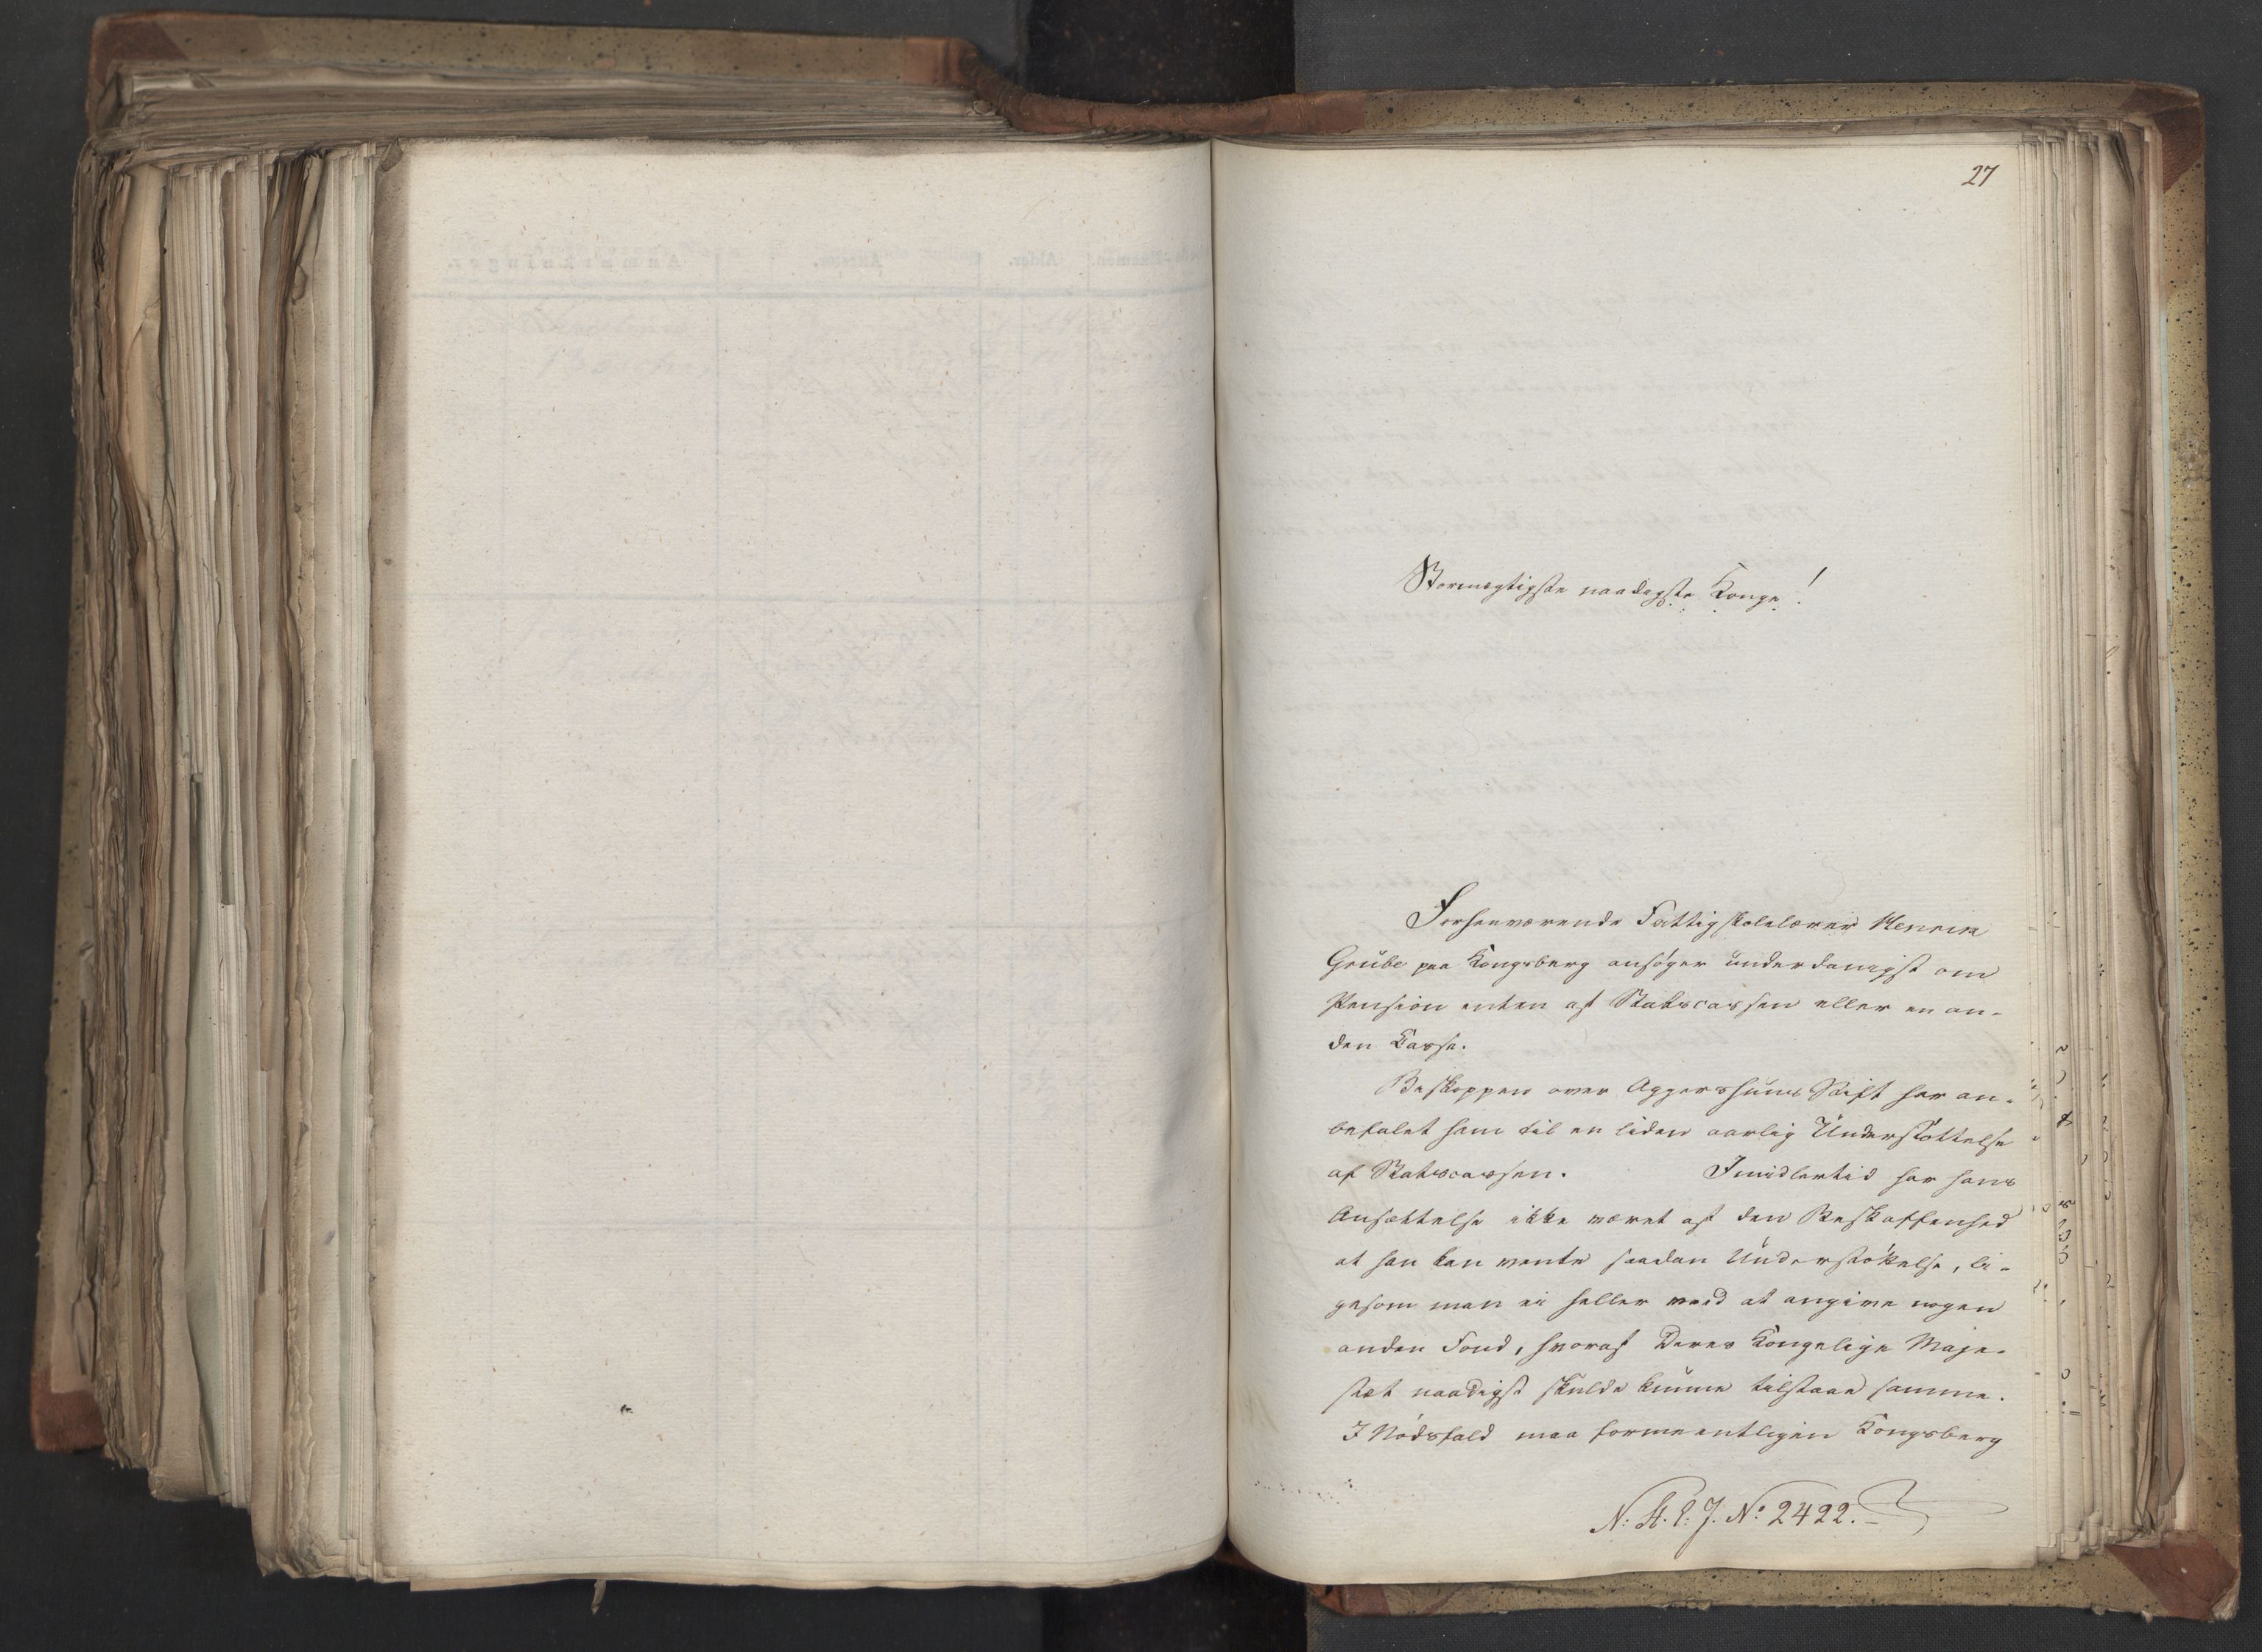 27
Stormægtigste naadigste Konge!
Forhenværende Fattigskolelærer Henrik
Grube paa Kongsberg ansøger underdanigst om
Pension enten af Statscassen eller en an-
den Casse.
Biskoppen over Aggershuus Stift har an-
befalet ham til en liden aarlig Understøttelse
af Statscassen. Imidlertid har hans
Ansættelse ikke været af den Beskaffenhed
at han kan vente saadan Understøttelse, li-
gesom man ei heller veed at angive nogen
anden Fond, hvoraf Deres Kongelige Maje-
stæt naadigst skulde kunne tilstaae samme.
I Nødsfald maa formeentligen Kongsberg
N: A. E: J. No 2422.
Anmærkninger.
Alder.